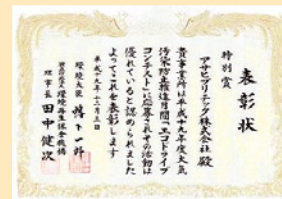 表彰状
特別賞
アサヒプリテック株式会社 殿
貴事業所は平成十九年度大気
汚染防止推進月間「エコドライブ
コンテスト」に応募されその活動は
優れていると認められました
よってこれを表彰します
平成十九年十二月三日
環境大臣 鴨下一郎
独立行政法人環境再生保全機構
理事長 田中健次